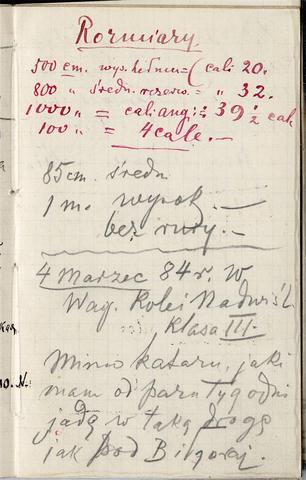 Rozmiary.
500 cm. wys. hełmu = (cali 20.
800 „ średn. rezerw. = „ 32.
1000 „ = cali ang: = 39 1/2 cali
100 „ = 4 cale. —
85 cm. średn.
1 m. wysok. —
bez rury. —
4 Marzec 84 r. w
Wag. Kolei Nadwiśl.
klasa III. —
Mimo kataru, jaki
mam od paru tygodni
jadę w taką drogę
jak pod Biłgoraj.